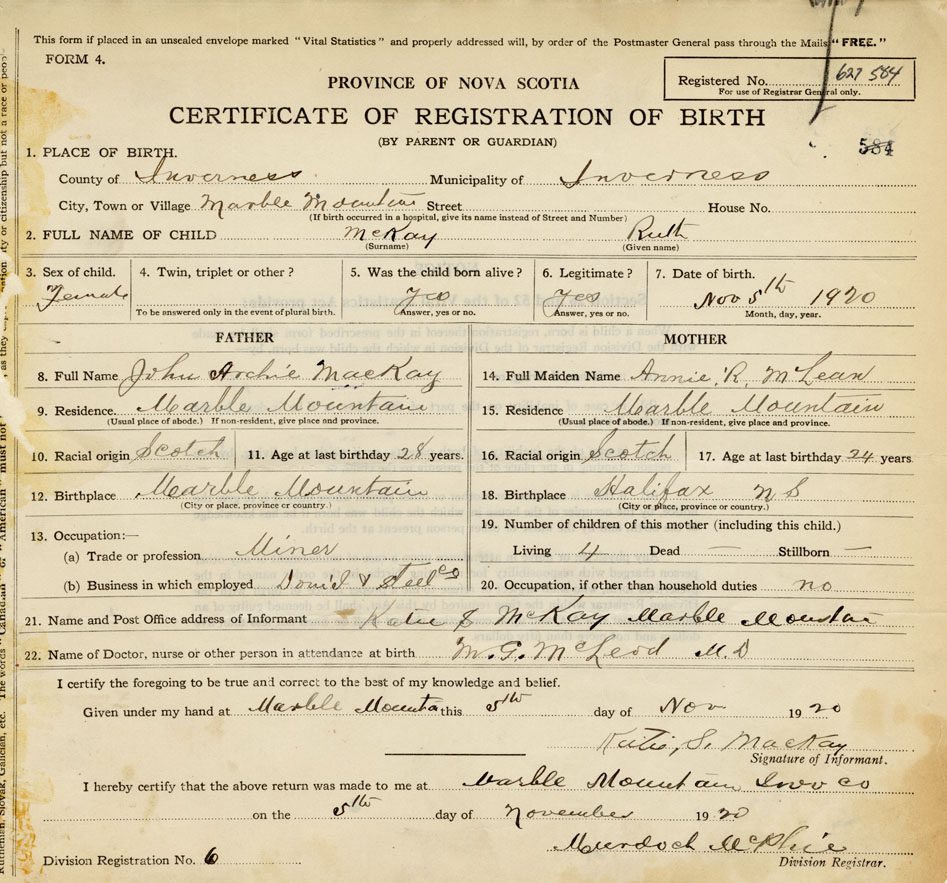 This form if placed in an unsealed envelope marked "Vital Statistics" and properly addressed will, by order of the Postmaster General pass through the Mails "FREE."
FORM 4.
Registered No. 627 584
For use of Registrar General only.
PROVINCE OF NOVA SCOTIA
CERTIFICATE OF REGISTRATION OF BIRTH
(BY PARENT OR GUARDIAN)
584
1. PLACE OF BIRTH.
County of Inverness Municipality of Inverness
City, Town or Village Marble Mountain Street House No.
(If birth occurred in a hospital, give its name instead of Street and Number)
2. FULL NAME OF CHILD McKay Ruth
(Surname) (Given name)
3. Sex of child. 4. Twin, triplet or other? 5. Was the child born alive? 6. Legitimate? 7. Date of birth.
Female yes yes Nov 5th 1920
To be answered only in the event of plural birth. Answer, yes or no. Answer, yes or no. Month, day, year.
FATHER MOTHER
8. Full Name John Archie MacKay 14. Full Maiden Name Annie R. McLean
9. Residence. Marble Mountain 15. Residence Marble Mountain
(Usual place of abode.) If non-resident, give place and province. (Usual place of abode.) If non-resident, give place and province.
10. Racial origin Scotch 11. Age at last birthday 28 years. 16. Racial origin Scotch 17. Age at last birthday 24 years
12. Birthplace Marble Mountain 18. Birthplace Halifax N S
(City or place, province or country.) (City or place, province or country.)
13. Occupation:— 19. Number of children of this mother (including this child.)
(a) Trade or profession Miner Living 4 Dead — Stillborn —
(b) Business in which employed Dom'd & Steel Co 20. Occupation, if other than household duties no
21. Name and Post Office address of Informant Katie S McKay Marble Mountain
22. Name of Doctor, nurse or other person in attendance at birth M. G. McLeod M.D
I certify the foregoing to be true and correct to the best of my knowledge and belief.
Given under my hand at Marble Mounta this 5th day of Nov 1920
Katie, S. MacKay
Signature of Informant.
I hereby certify that the above return was made to me at Marble Mountain Inv Co
on the 5th day of November 1920
Murdoch McPhie
Division Registration No. 6 Division Registrar.